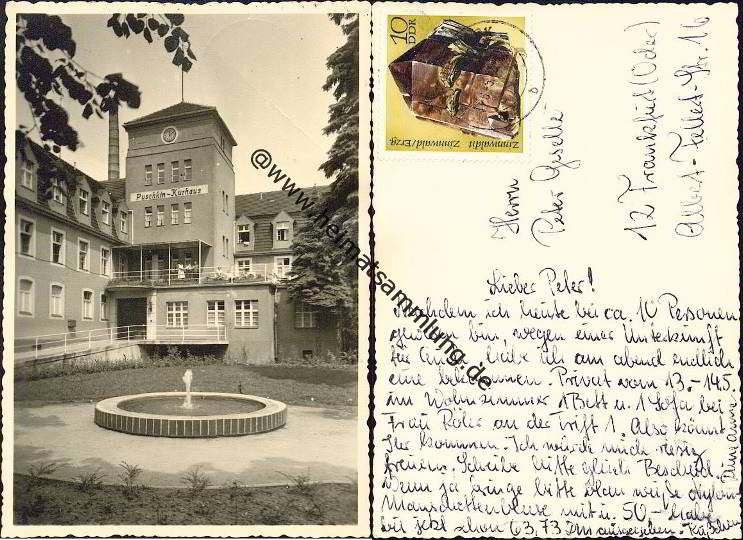 Puschkin-Kurhaus
@www.heimatsammlung.de
10
DDR
Zinnwaldit
Zinnwald/Erzg.
Herrn
Peter Geselle
12 Frankfurt (Oder)
Albert-Fellert-Str. 16
Lieber Peter!
Nachdem ich heute bei ca. 10 Personen
bin, wegen einer Unterkunft
für habe ich am abend endlich
eine bekommen. Privat vom 13.-14.5.
im Wohnzimmer 1 Bett u. 1 Sofa bei
Frau Röler an der Trift 1. Also könnt
Ihr kommen. Ich würde mich riesig
freuen. Schreibe bitte gleich Bescheid.
Wenn ja bringe bitte blau weiße
Manschettenbluse mit u. 50,- habe
bis jetzt schon 63,73 M ausgegeben.